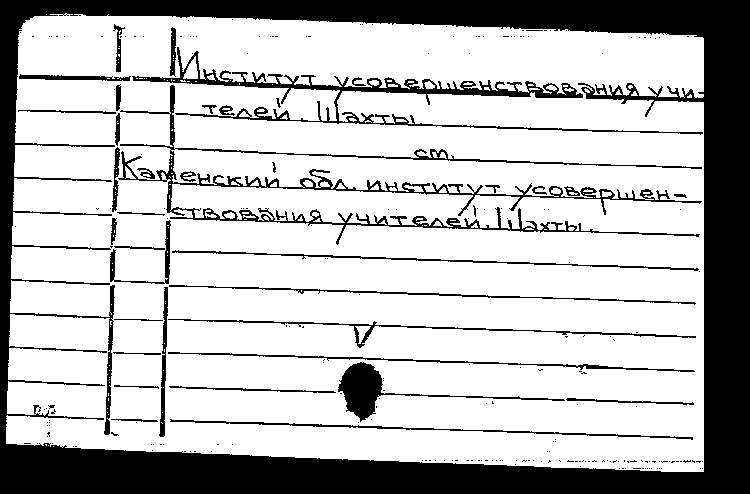 Институт усовершенствования учи-
телей. Шахты.
см.
Каменский обл. институт усовершен-
ствования учителей. Шахты.
V